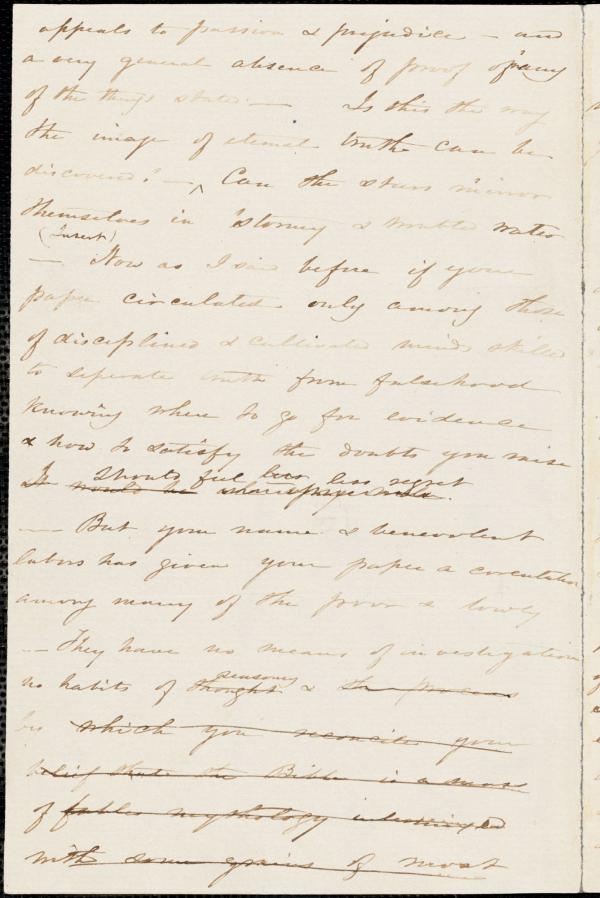 appeals to passion & prejudice – and
a very general absence of proof of any
of the things stated. — Is this the way
the image of eternal truth can be
discovered? – ^ Can the stars mirror
themselves in stormy & troubled water
(insert)
— Now as I said before if your
paper circulated only among those
of disciplined & cultivated minds skilled
to seperate truth from falsehood
knowing where to go for evidence
& how to satisfy the doubts you raise
I should feel less regret
would be
— But your name & benevolent
labors has given your paper a circulation
among many of the poor & lowly
— They have no means of investigation
no habits of thought reasoning & the process
by which you reconcile your
belief that the Bible is a mass
of fables mythology intermixed
with some grains of most